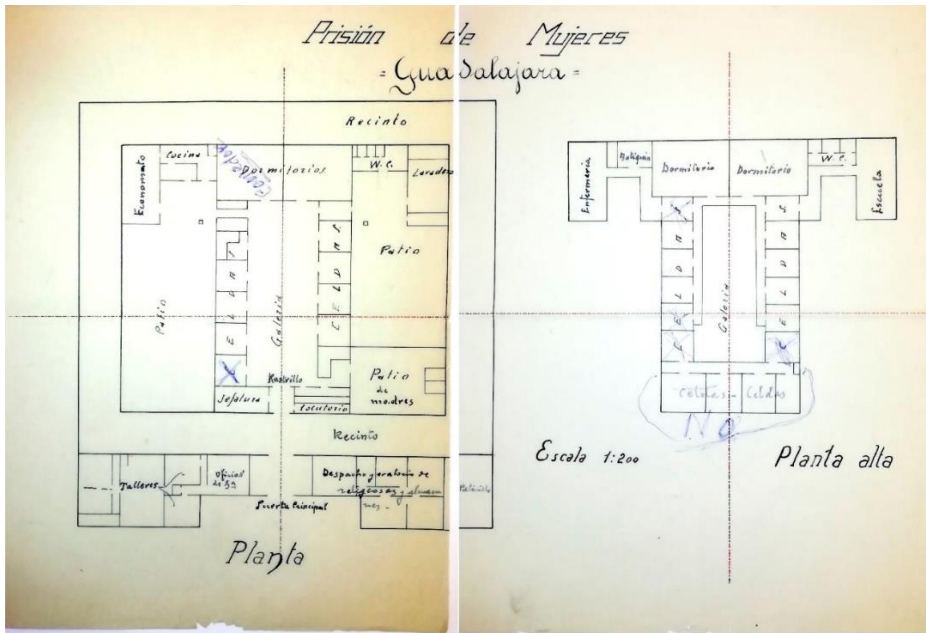 Prisión de Mujeres
= Guadalajara =
Recinto
Cocina
Comedor
Dormitorios
W.C.
Lavadero
Economato
Patio
CELDAS
Galería
CELDAS
Patio
Rastrillo
Jefatura
Locutorio
Patio
de
madres
Recinto
Talleres
Oficinas
Despacho y oratorio de
religiosas y almace
nes.-
Puerta Principal
Planta
Enfermería
Botiquín
Dormitorio
Dormitorio
W.C.
Escuela
CELDAS
Galería
CELDAS
Celdas - Celdas
NO
Escala 1:200
Planta alta